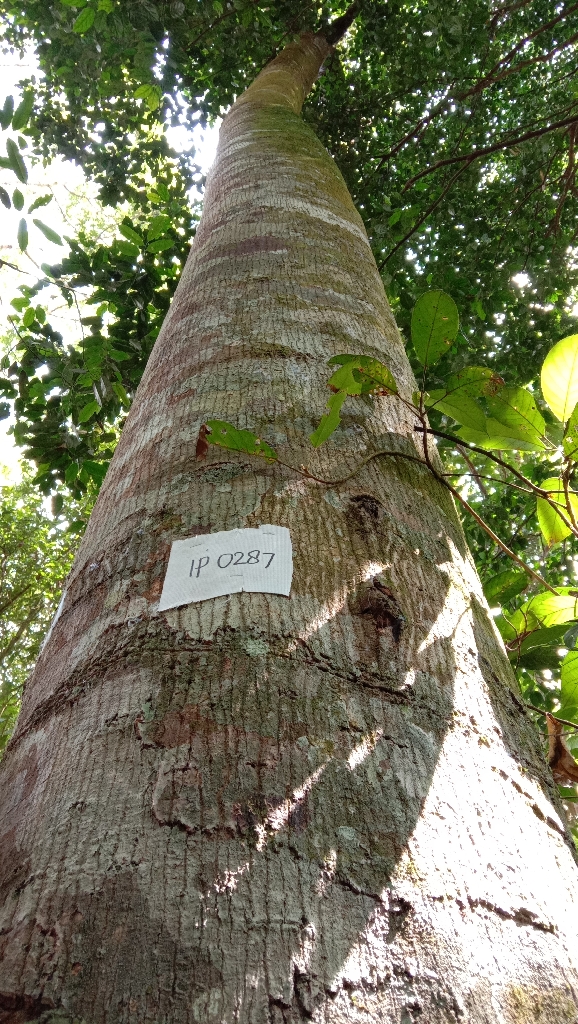 IP 0287